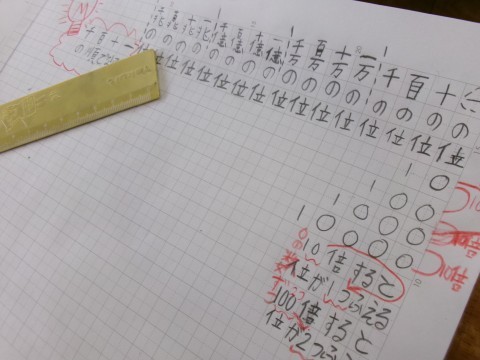 千兆の位
百兆の位
十兆の位
一兆の位
千億の位
百億の位
十億の位
一億の位
千万の位
百万の位
十万の位
一万の位
千の位
百の位
十の位
一の位
千百十一
10
100
1000
10000
10倍
10倍
10倍すると
位が1つふえる
100倍すると
位が2つふ